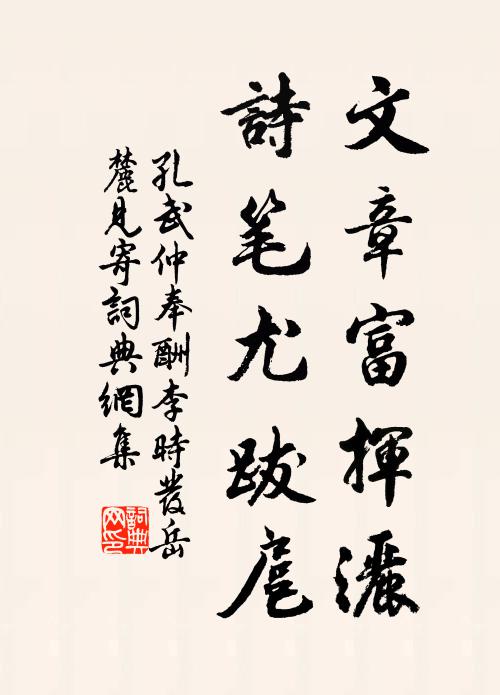 文章富揮灑
詩笔尤跋扈
孔武仲奉酬李時發岳
麓見寄詞典網集
詞典
网印